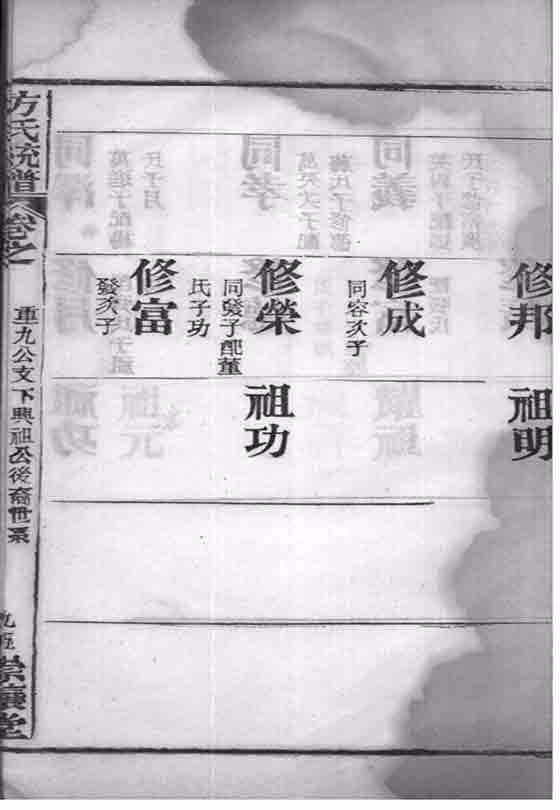 修邦
祖明
修成
同容次子
修榮
同發子配董
氏子功
祖功
修富
發次子
方氏統譜
卷之
重九公支下興祖公後裔世系